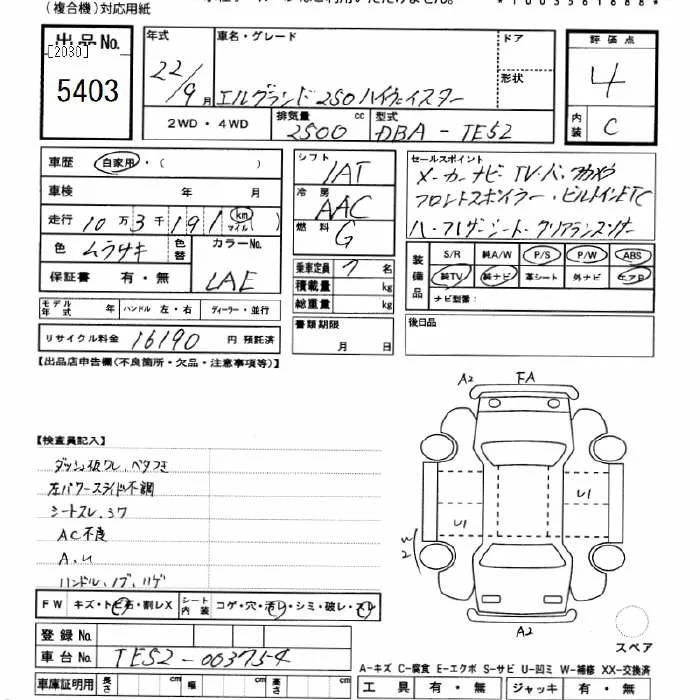 (複合機)対応用紙
出品No. [2030] 5403
年式 22/9月 車名・グレード エルグランド250ハイウェイスター ドア 形状
2WD・4WD 排気量 2500 cc 型式 DBA-TE52
評価点 4
内装 C
車歴 自家用・( )
車検 年 月
走行 10万3千191 km(マイル)
色 ムラサキ 色替 カラーNo. LAE
保証書 有・無
モデル年式 年 ハンドル 左・右 ディーラー・並行
リサイクル料金 16190 円 預託済
シフト IAT
冷房 AAC
燃料 G
乗車定員 7 名
積載量 kg
総重量 kg
書類期限 月 日
セールスポイント
メーカーナビ TV.バックカメラ
フロントスポイラー・ビルトインETC
ハーフレザーシート・クリアランスソナー
装備品 S/R 純A/W P/S P/W ABS
純TV 純ナビ 革シート 外ナビ エアB
ナビ型番:
後日品
【出品店申告欄(不良箇所・欠品・注意事項等)】
【検査員記入】
ダッシュ板ワレ、ベタつき
左パワースライド不調
シートスレ、シワ
AC不良
A、U
ハンドル、ノブ、ハゲ
A2 FA
U1
U1
W2
A2
スペア
FW キズ・トビ石・割レX シート内装 コゲ・穴・汚レ・シミ・破レ・スレ
登録No.
車台No. TE52-003754
車庫証明用 長さ cm 幅 cm 高さ cm
A-キズ C-腐食 E-エクボ S-サビ U-凹ミ W-補修 XX-交換済
工具 有・無 ジャッキ 有・無